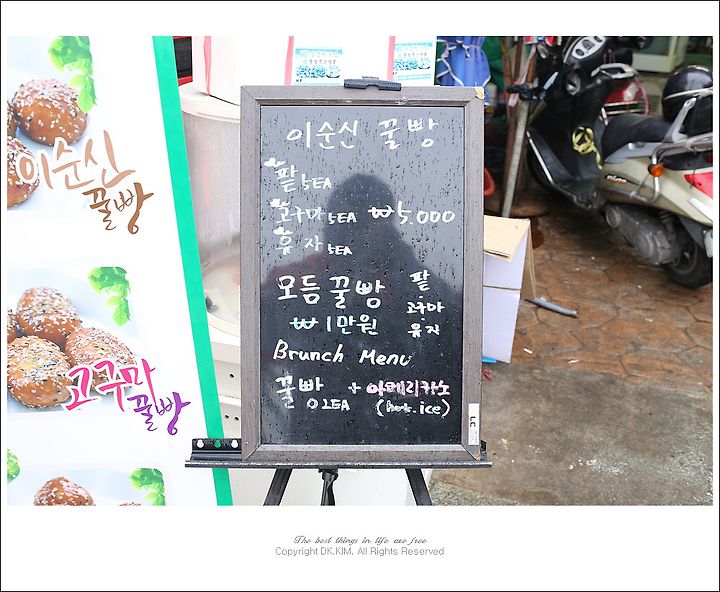 이순신
꿀빵
고구마
꿀빵
이순신 꿀빵
팥 5EA
고구마 5EA ₩5,000
유자 5EA
모듬 꿀빵
팥
고구마
유자
₩1만원
Brunch Menu
꿀빵 2EA + 아메리카노
(hot. ice)
The best things in life are free
Copyright DK.KIM. All Rights Reserved